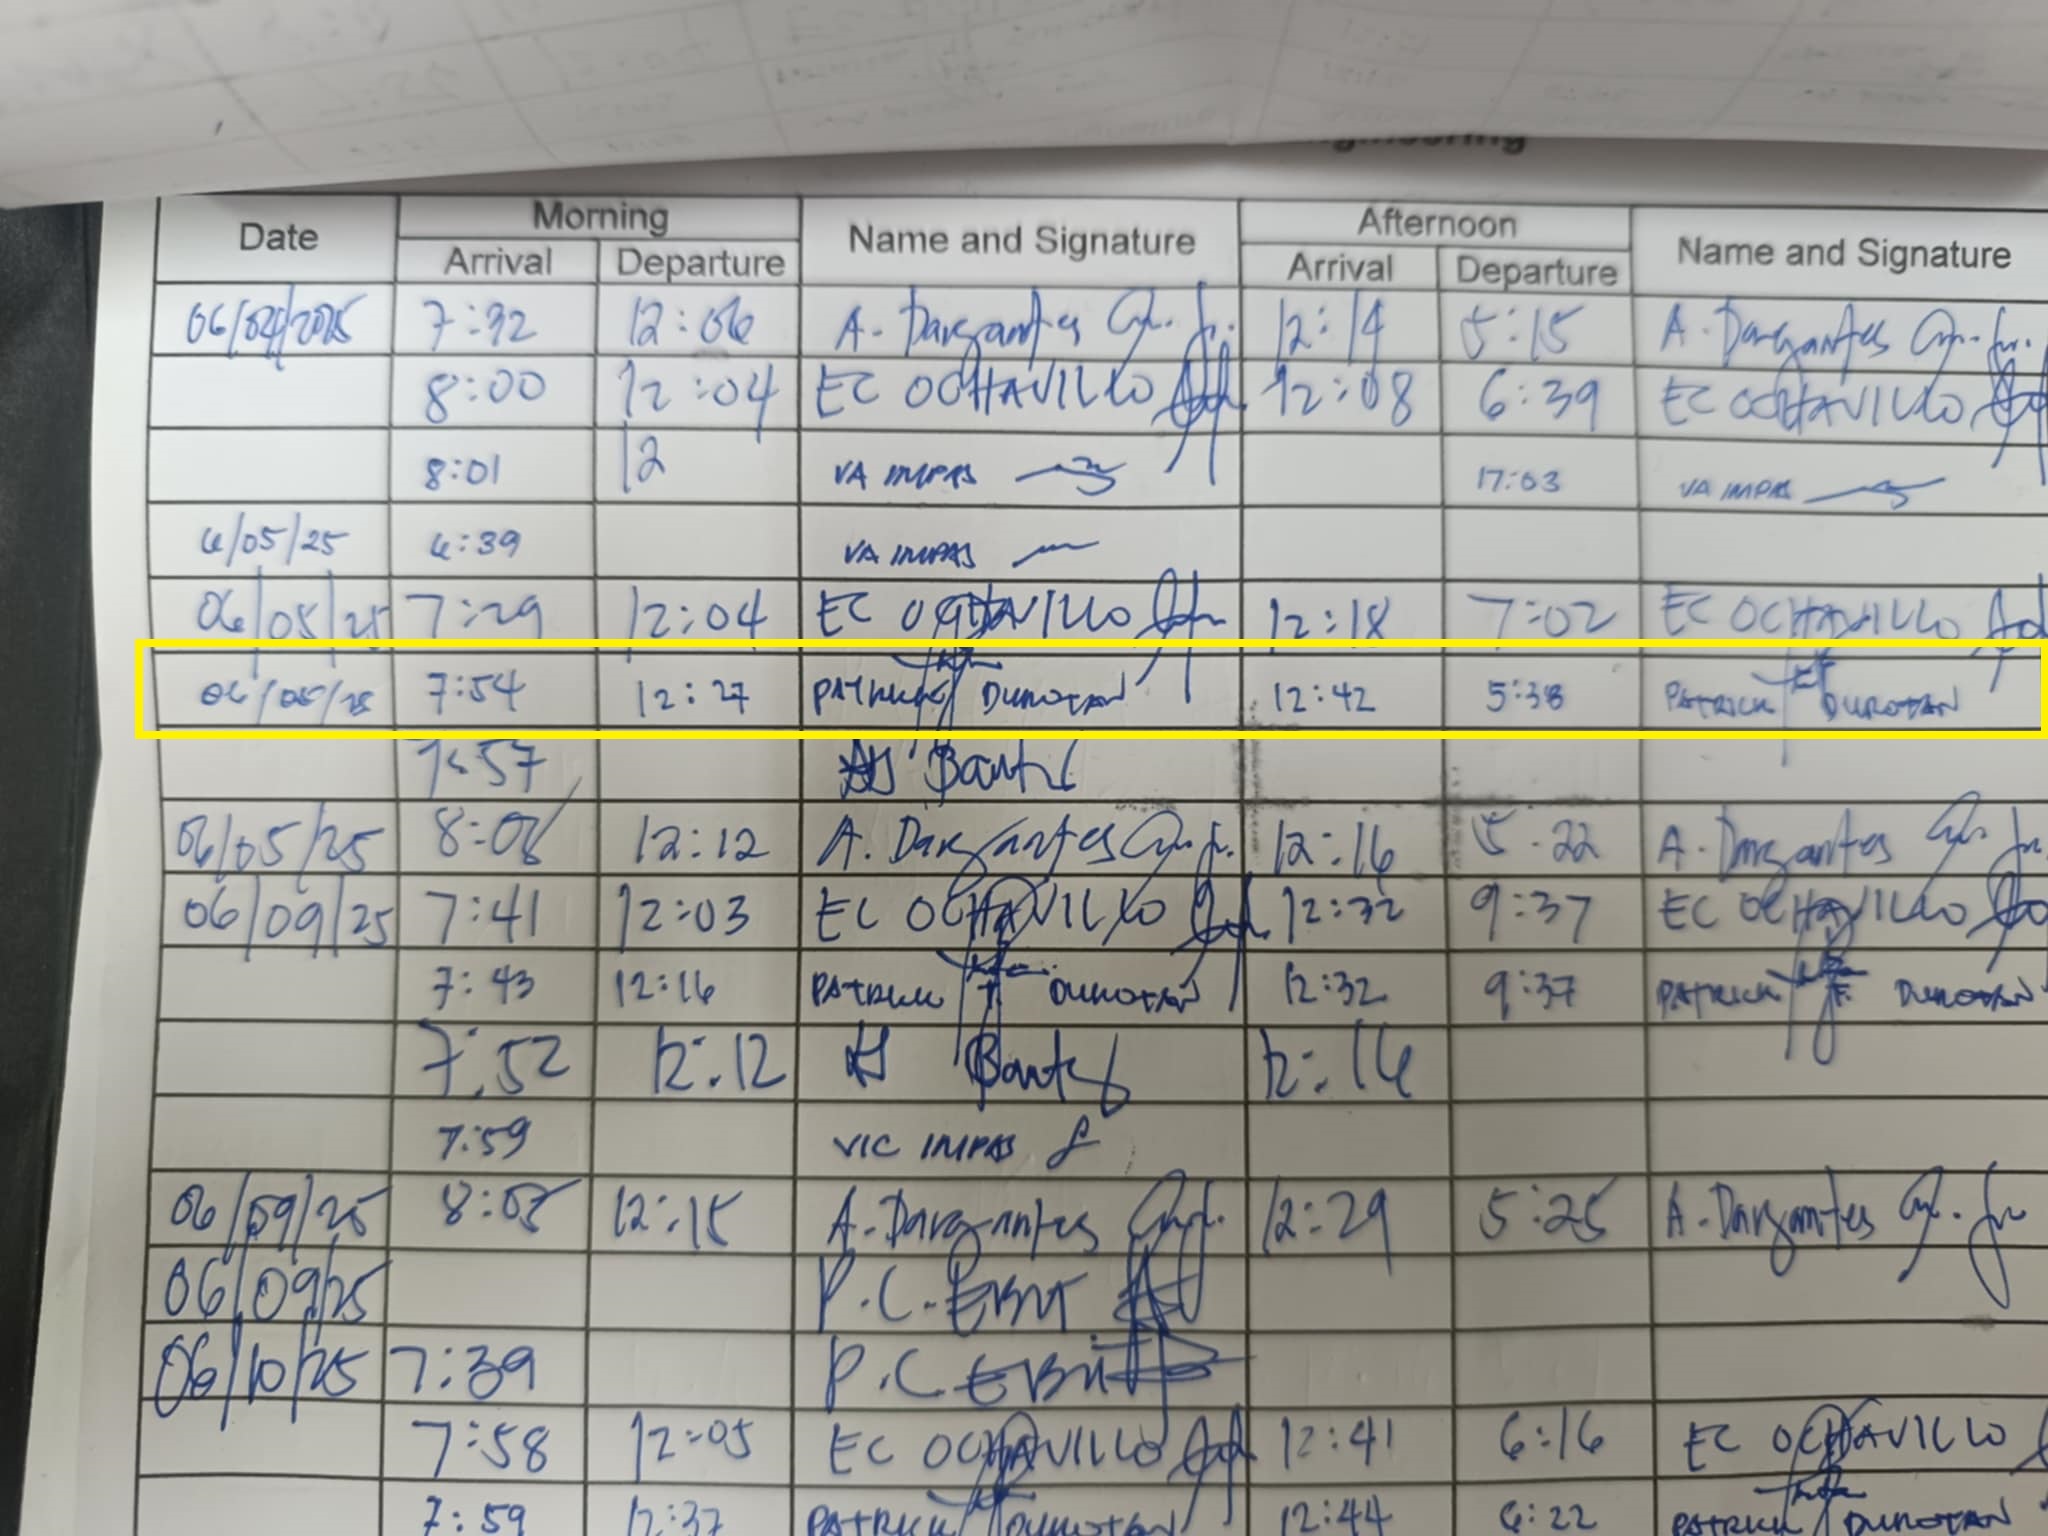 Date Morning Name and Signature Afternoon Name and Signature
Arrival Departure Arrival Departure
06/04/2025 7:32 12:06 A. Dargantes Jr. 12:14 5:15 A. Dargantes Jr.
8:00 12:04 EC OCHAVILLO 12:08 6:39 EC OCHAVILLO
8:01 12 VA IMPAS 17:03 VA IMPAS
6/05/25 6:39 VA IMPAS
06/05/25 7:29 12:04 EC OCHAVILLO 12:18 7:02 EC OCHAVILLO
06/05/25 7:54 12:27 PATRICK DUROTAN 12:42 5:38 PATRICK DUROTAN
7:57
06/05/25 8:08 12:12 A. Dargantes Jr. 12:16 5:22 A. Dargantes Jr.
06/09/25 7:41 12:03 EC OCHAVILLO 12:32 9:37 EC OCHAVILLO
7:43 12:16 PATRICK F. DUROTAN 12:32 9:37 PATRICK F. DUROTAN
7:52 12:12 12:16
7:59 VIC IMPAS
06/09/25 8:05 12:15 A. Dargantes Jr. 12:29 5:25 A. Dargantes Jr.
06/09/25 P.C. EBIT
06/10/25 7:39 P.C. EBIT
7:58 12:05 EC OCHAVILLO 12:41 6:16 EC OCHAVILLO
7:59 12:37 PATRICK DUROTAN 12:44 6:22 PATRICK DUROTAN